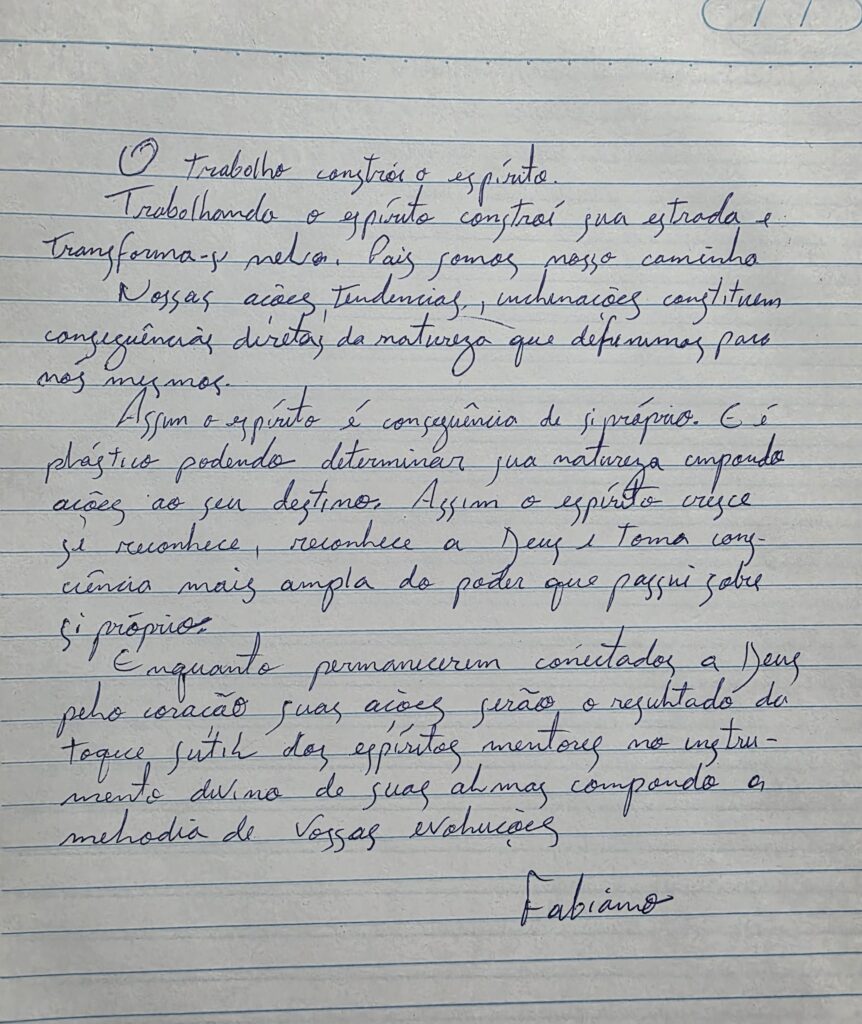 O trabalho constrói o espírito.
Trabalhando o espírito constroí sua estrada e
transforma-se nela. Pois somos nosso caminho
Nossas ações, tendencias, inclinações constituem
consequências diretas da natureza que definimos para
nós mesmos.
Assim o espírito é consequência de si próprio. E é
plástico podendo determinar sua natureza impondo
ações ao seu destino. Assim o espírito cresce
se reconhece, reconhece a Deus e toma cons-
ciência mais ampla do poder que possui sobre
si próprio.
Enquanto permanecerem conectados a Deus
pelo coração suas ações serão o resultado do
toque sútil dos espíritos mentores no instru-
mento divino de suas almas compondo a
melodia de vossas evoluções
Fabiano